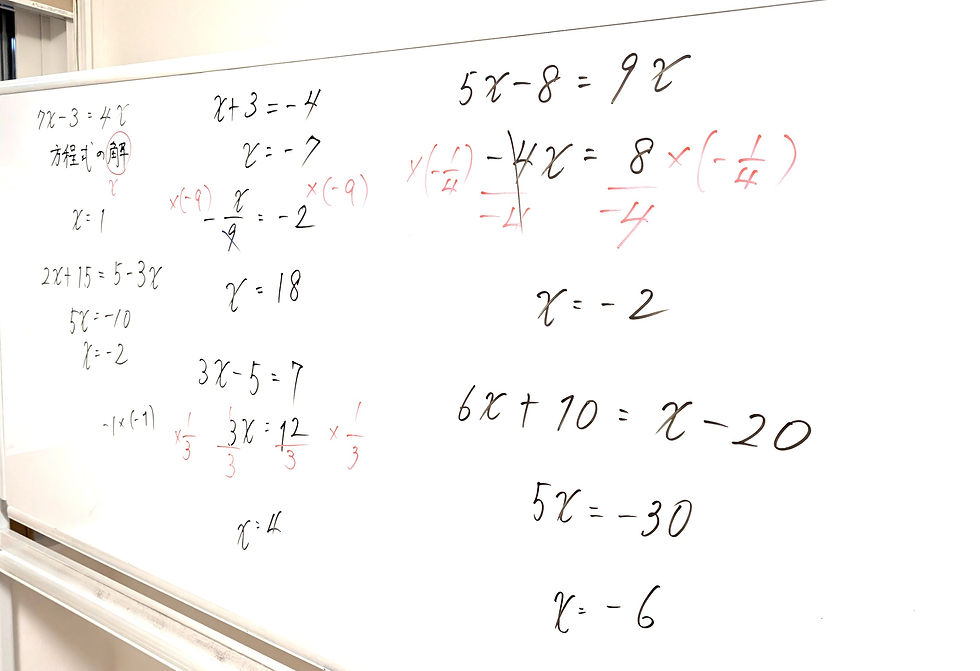 7x-3=4x
方程式の解
x
x=1
2x+15=5-3x
5x=-10
x=-2
-1×(-1)
x+3=-4
x=-7
×(-9) -x/9=-2 ×(-9)
x=18
3x-5=7
×1/3 3x/3=12/3 ×1/3
1
x=4
5x-8=9x
×(-1/4) -4x/-4=8/-4 ×(-1/4)
x=-2
6x+10=x-20
5x=-30
x=-6